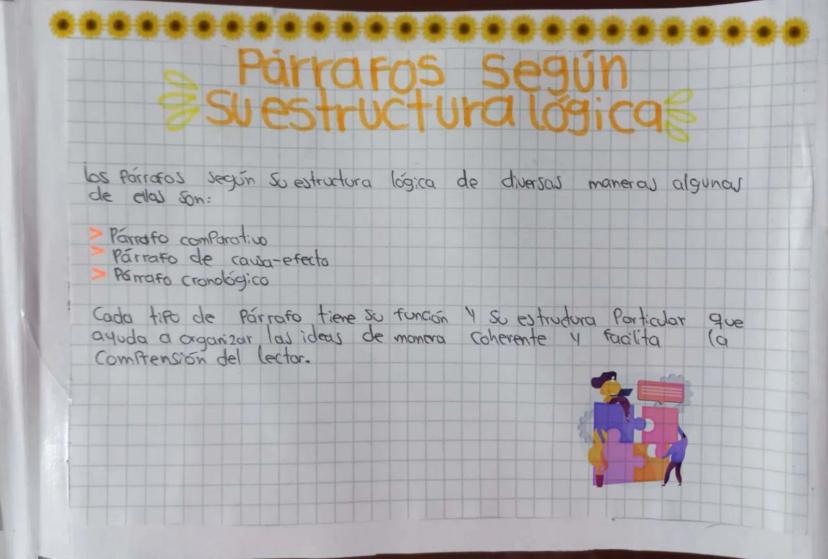 Párrafos según
su estructura lógica
Los Párrafos según su estructura lógica de diversas maneras algunas
de ellas son:
> Párrafo comparativo
> Párrafo de causa-efecto
> Párrafo cronológico
Cada tipo de Párrafo tiene su función y su estructura Particular que
ayuda a organizar las ideas de manera coherente y facilita la
Comprensión del lector.